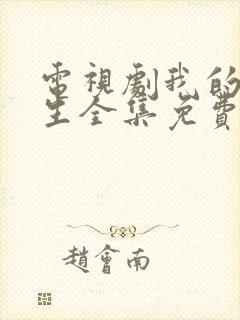 電視劇我的
生全集免費
趙會南